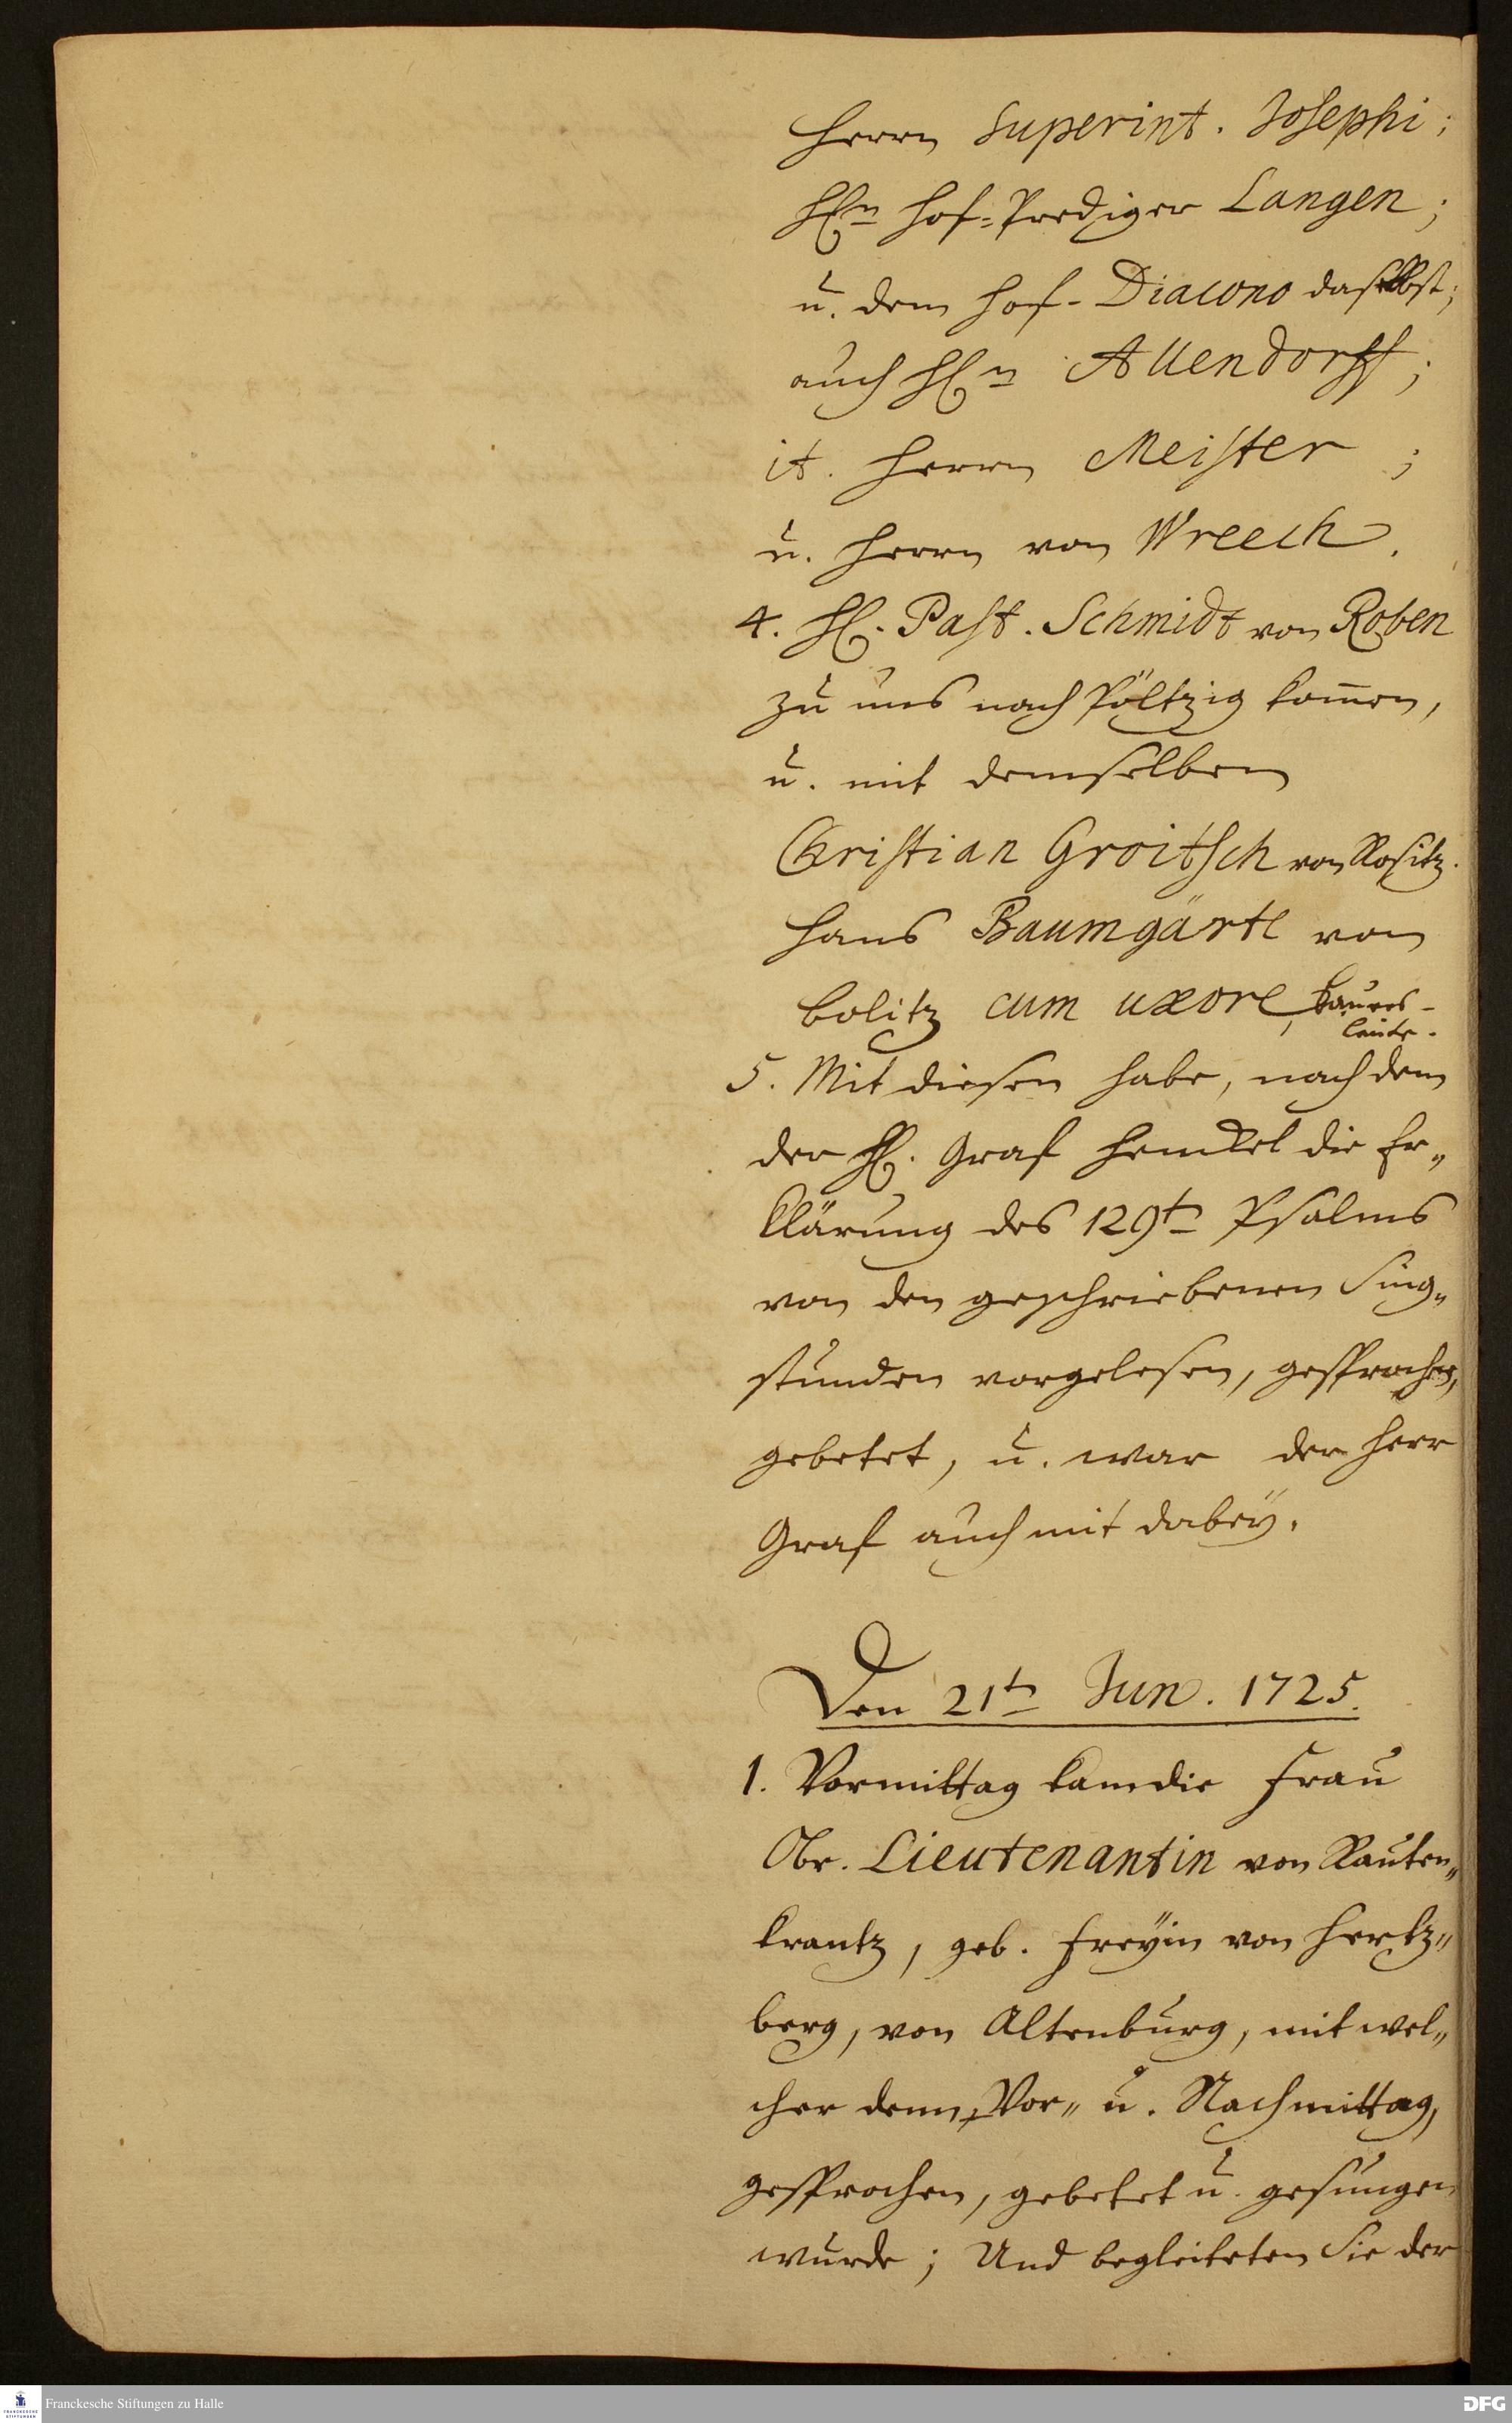 Herrn Superint. Josephi;
HEn Hof-Prediger Langen;
u. dem Hof-Diacono daselbst;
auch HEn Allendorff;
it. Herrn Meister;
u. Herrn von Wreech.
4. HE. Past. Schmidt von Roben
zu uns nach Pöltzig kom̄en,
u. mit demselben
Christian Groitsch von Rositz.
Hans Baumgärtl von
Bolitz cum uxore, Bauers-
leute.
5. Mit diesen habe, nach dem
der HE. Graf Henckel die Er„
klärung des 129tn Psalms
von den geschriebenen Sing„
stunden vorgelesen, gesprochen,
gebetet, u. war der Herr
Graf auch mit dabeÿ.
Den 21tn Jun. 1725.
1. Vormittag kam die Frau
Obr. Lieutenantin von Rauten„
krantz, geb. Freÿin von Hertz„
berg, von Altenburg, mit wel„
cher denn, Vor„ u. Nachmittag,
gesprochen, gebetet u. gesungen
wurde; Und begleiteten Sie der
Franckesche Stiftungen zu Halle
FRANCKESCHE
STIFTUNGEN
DFG